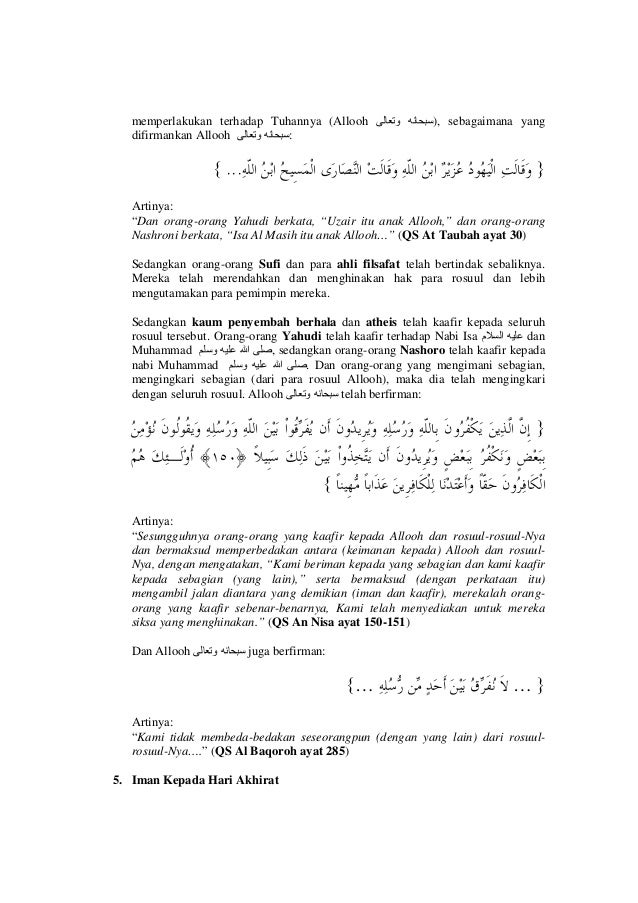 memperlakukan terhadap Tuhannya (Allooh سبحانه وتعالى), sebagaimana yang
difirmankan Allooh سبحانه وتعالى:
{ وَقَالَتِ الْيَهُودُ عُزَيْرٌ ابْنُ اللّهِ وَقَالَتْ النَّصَارَى الْمَسِيحُ ابْنُ اللّهِ... }
Artinya:
“Dan orang-orang Yahudi berkata, “Uzair itu anak Allooh,” dan orang-orang
Nashroni berkata, “Isa Al Masih itu anak Allooh…” (QS At Taubah ayat 30)
Sedangkan orang-orang Sufi dan para ahli filsafat telah bertindak sebaliknya.
Mereka telah merendahkan dan menghinakan hak para rosuul dan lebih
mengutamakan para pemimpin mereka.
Sedangkan kaum penyembah berhala dan atheis telah kaafir kepada seluruh
rosuul tersebut. Orang-orang Yahudi telah kaafir terhadap Nabi Isa عليه السلام dan
Muhammad صلى الله عليه وسلم, sedangkan orang-orang Nashoro telah kaafir kepada
nabi Muhammad صلى الله عليه وسلم. Dan orang-orang yang mengimani sebagian,
mengingkari sebagian (dari para rosuul Allooh), maka dia telah mengingkari
dengan seluruh rosuul. Allooh سبحانه وتعالى telah berfirman:
{ إِنَّ الَّذِينَ يَكْفُرُونَ بِاللّهِ وَرُسُلِهِ وَيُرِيدُونَ أَن يُفَرِّقُواْ بَيْنَ اللّهِ وَرُسُلِهِ وَيقُولُونَ نُؤْمِنُ
بِبَعْضٍ وَنَكْفُرُ بِبَعْضٍ وَيُرِيدُونَ أَن يَتَّخِذُواْ بَيْنَ ذَلِكَ سَبِيلاً ﴿١٥٠﴾ أُوْلَـئِكَ هُمُ
الْكَافِرُونَ حَقّاً وَأَعْتَدْنَا لِلْكَافِرِينَ عَذَاباً مُّهِيناً }
Artinya:
“Sesungguhnya orang-orang yang kaafir kepada Allooh dan rosuul-rosuul-Nya
dan bermaksud memperbedakan antara (keimanan kepada) Allooh dan rosuul-
Nya, dengan mengatakan, “Kami beriman kepada yang sebagian dan kami kaafir
kepada sebagian (yang lain),” serta bermaksud (dengan perkataan itu)
mengambil jalan diantara yang demikian (iman dan kaafir), merekalah orang-
orang yang kaafir sebenar-benarnya, Kami telah menyediakan untuk mereka
siksa yang menghinakan.” (QS An Nisa ayat 150-151)
Dan Allooh سبحانه وتعالى juga berfirman:
{ ... لاَ نُفَرِّقُ بَيْنَ أَحَدٍ مِّن رُّسُلِهِ ...}
Artinya:
“Kami tidak membeda-bedakan seseorangpun (dengan yang lain) dari rosuul-
rosuul-Nya….” (QS Al Baqoroh ayat 285)
5. Iman Kepada Hari Akhirat